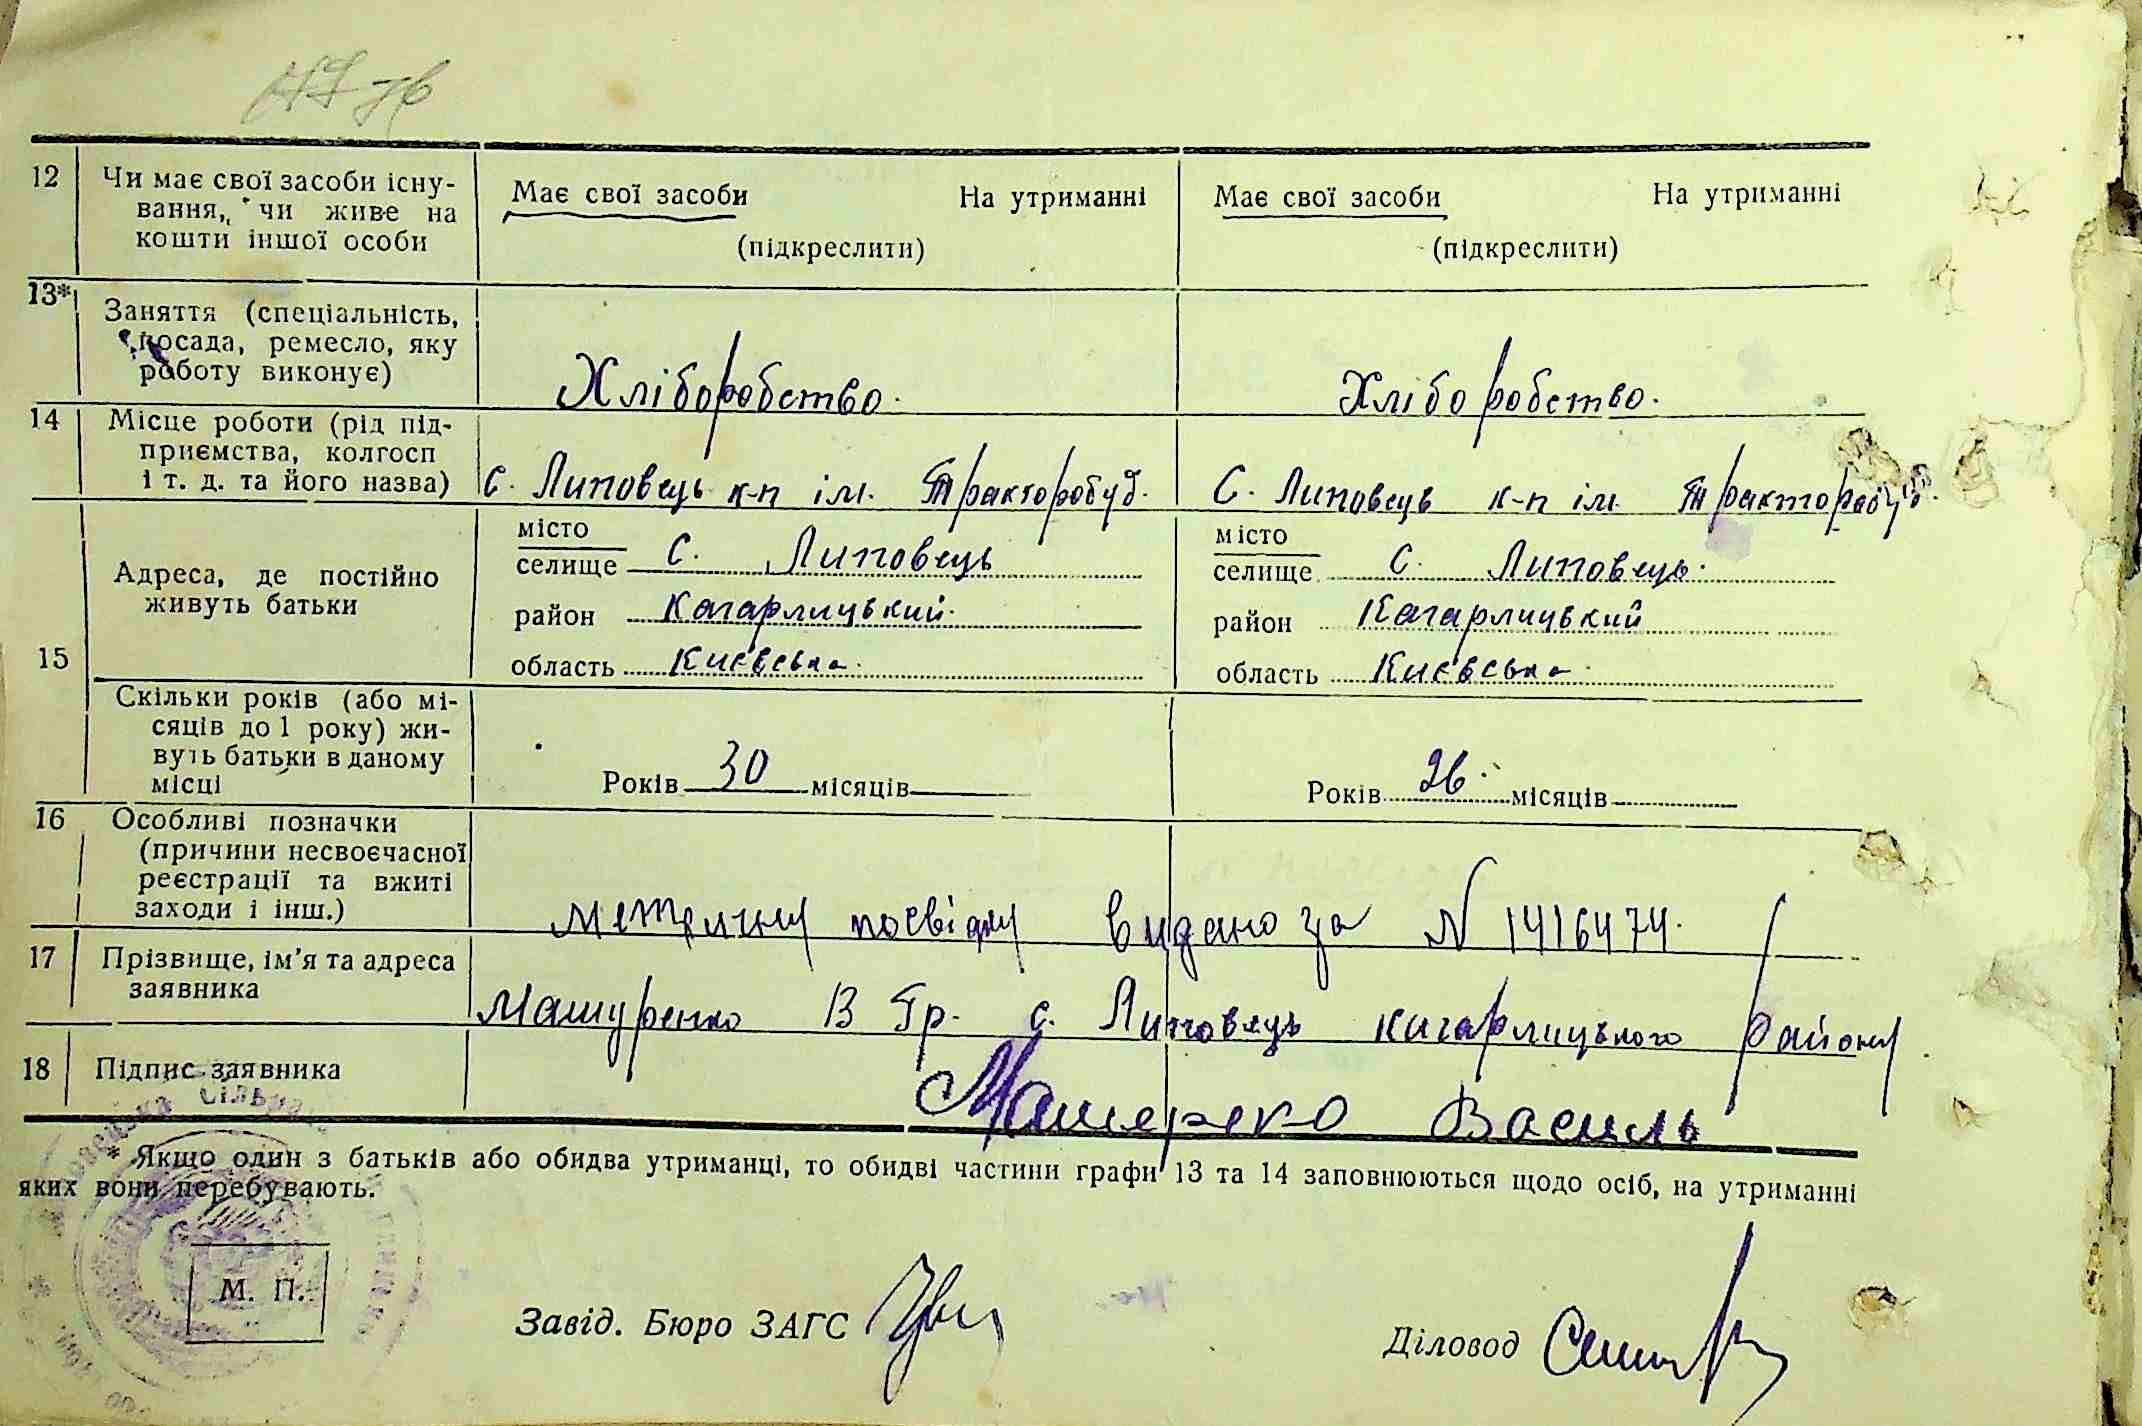 12 Чи має свої засоби існу-
вання, чи живе на
кошти іншої особи
Має свої засоби На утриманні
(підкреслити)
Має свої засоби На утриманні
(підкреслити)
13* Заняття (спеціальність,
посада, ремесло, яку
роботу виконує)
Хліборобство.
Хліборобство.
14 Місце роботи (рід під-
приємства, колгосп
і т. д. та його назва)
С. Липовець к-п ім. Тракторобуд.
С. Липовець к-п ім. Тракторобуд.
15 Адреса, де постійно
живуть батьки
місто
селище С. Липовець
район Кагарлицький.
область Києвська.
місто
селище С. Липовець.
район Кагарлицький
область Києвська.
Скільки років (або мі-
сяців до 1 року) жи-
вуть батьки в даному
місці
Років 30 місяців
Років 26 місяців
16 Особливі позначки
(причини несвоєчасної
реєстрації та вжиті
заходи і інш.)
метричну посвідку видано за N 1416474.
17 Прізвище, ім'я та адреса
заявника
Машуренко В Гр. с. Липовець Кагарлицького району
18 Підпис заявника
Василь
* Якщо один з батьків або обидва утриманці, то обидві частини графи 13 та 14 заповнюються щодо осіб, на утриманні
яких вони перебувають.
М. П.
Завід. Бюро ЗАГС
Діловод